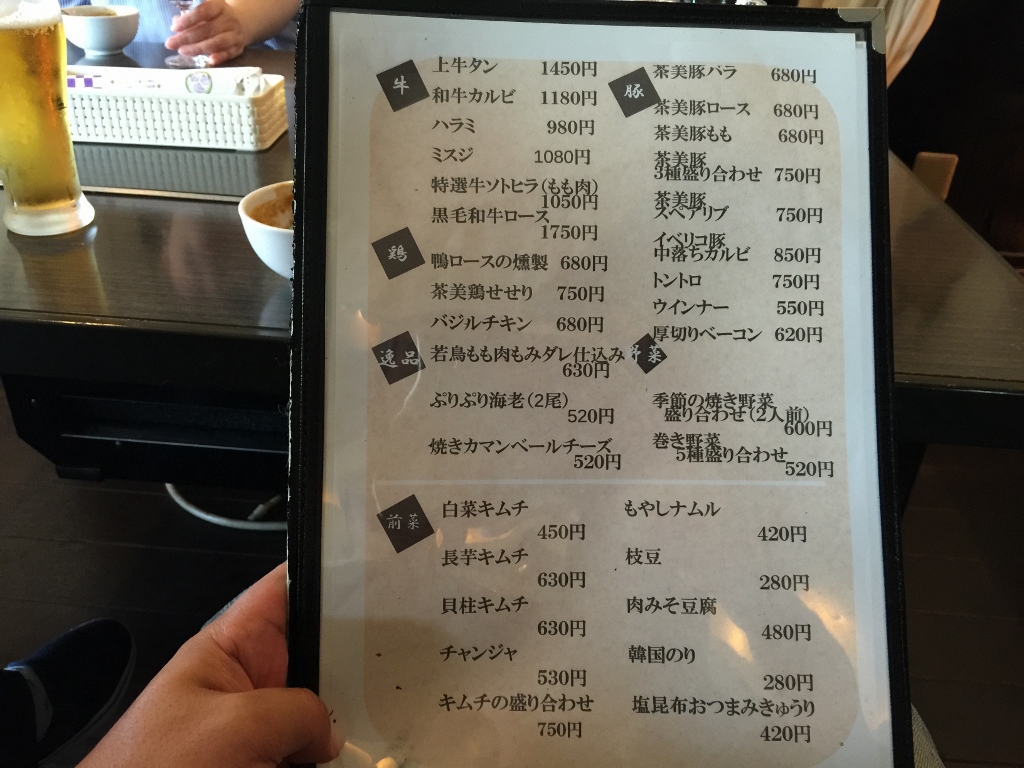 牛
上牛タン 1450円
和牛カルビ 1180円
ハラミ 980円
ミスジ 1080円
特選牛ソトヒラ(もも肉)
1050円
黒毛和牛ロース
1750円
鶏
鴨ロースの燻製 680円
茶美鶏せせり 750円
バジルチキン 680円
若鳥もも肉もみダレ仕込み
630円
逸品
ぷりぷり海老(2尾)
520円
焼きカマンベールチーズ
520円
豚
茶美豚バラ 680円
茶美豚ロース 680円
茶美豚もも 680円
茶美豚
3種盛り合わせ 750円
茶美豚
スペアリブ 750円
イベリコ豚
中落ちカルビ 850円
トントロ 750円
ウインナー 550円
厚切りベーコン 620円
野菜
季節の焼き野菜
盛り合わせ(2人前)
600円
巻き野菜
5種盛り合わせ
520円
前菜
白菜キムチ
450円
長芋キムチ
630円
貝柱キムチ
630円
チャンジャ
530円
キムチの盛り合わせ
750円
もやしナムル
420円
枝豆
280円
肉みそ豆腐
480円
韓国のり
280円
塩昆布おつまみきゅうり
420円